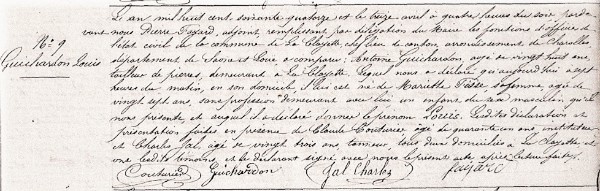 L'an mil huit cent soixante quatorze et le treize avril à quatre heures du soir parde
vant nous Pierre adjoint, remplissant par délégation du Maire les fonctions d'officier de
N° 9
l'état civil de la commune de La Clayette, chef lieu de canton, arrondissement de Charolles
Guichardon Louis
département de Saône et Loire a comparu : Antoine Guichardon, âgé de vingt huit ans
tailleur de pierres, demeurant à La Clayette. Lequel nous a déclaré qu'aujourd'hui à sept
heures du matin, en son domicile, il lui est né de Mariette sa femme, âgée de
vingt sept ans, sans profession demeurant avec lui un enfant du sexe masculin qu'il
nous présente et auquel il a déclaré donner le prénom Louis. Lesdites déclaration et
présentation faites en présence de Claude Couturier âgé de quarante cinq ans instituteur
et Charles Gal, âgé de vingt trois ans tanneur, tous deux domiciliés à La Clayette et
ont lesdits témoins et le déclarant signé avec nous le présent acte après lecture faite.
Couturier Guichardon Gal Charles